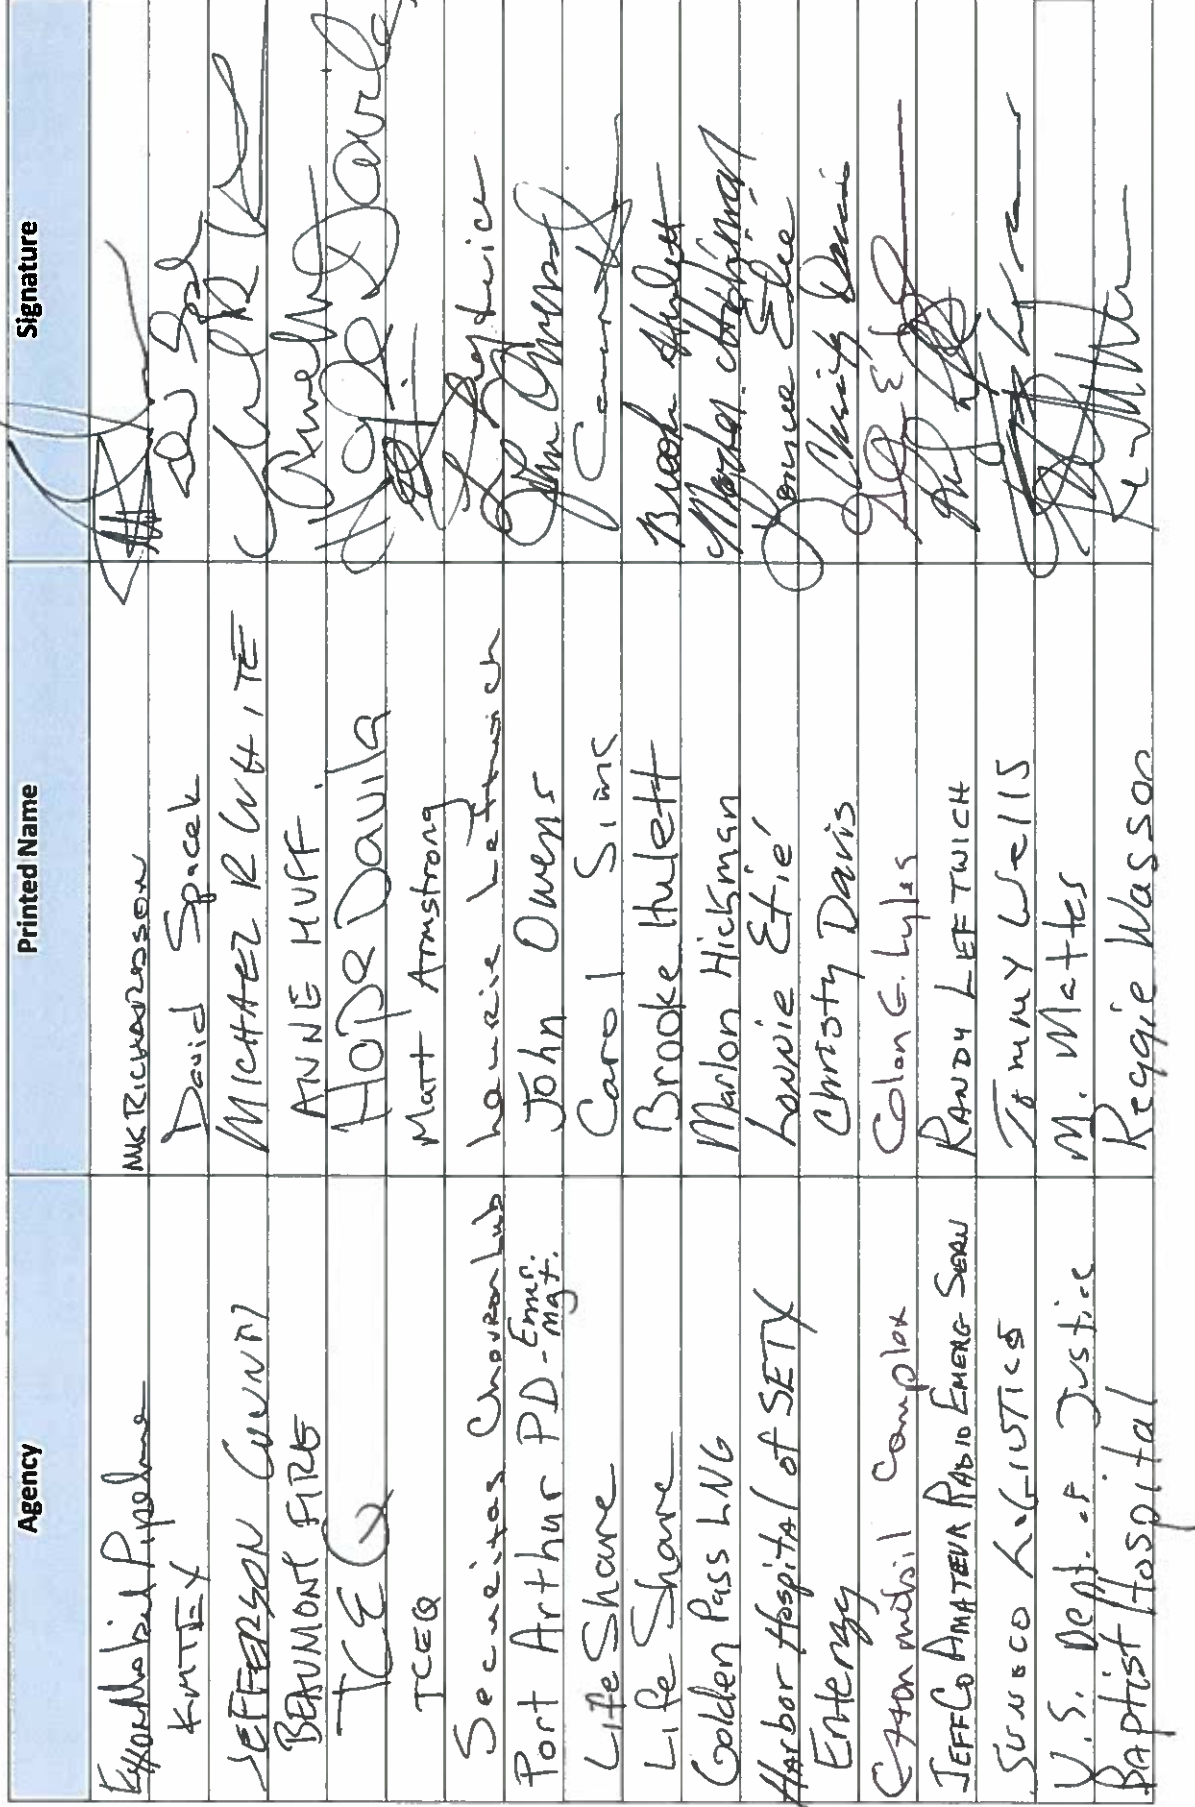 Agency Printed Name Signature
ExxonMobil Pipeline MK RICHARDSON
KMTEX David Spacek
JEFFERSON COUNTY MICHAEL R WHITE
BEAUMONT FIRE ANNE HUFF
TCEQ Hope Davila Hope Davila
TCEQ Matt Armstrong
Securitas Chevron Lub Laurie Leftwich
Port Arthur PD-Emer. Mgt. John Owens John Owens
LifeShare Carol Sims
Life Share Brooke Hulett Brooke Hulett
Golden Pass LNG Marlon Hickman Marlon Hickman
Harbor Hospital of SETX Lonnie Etié Lonnie Etie
Entergy Christy Davis Christy Davis
Exxonmobil Complex Colon E. Lyles
JEFFCO AMATEUR RADIO EMERG SERV RANDY LEFTWICH
SUNOCO LOGISTICS Jimmy Wells
U.S. Dept. of Justice M. Mattes
Baptist Hospital Reggie Wasson